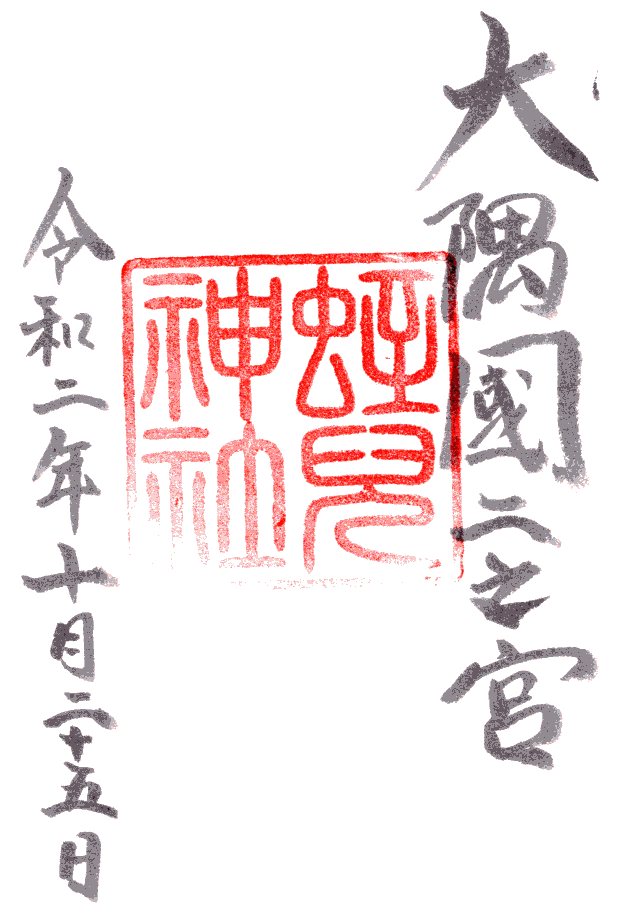 大隅國二之宮
蛭兒
神社
令和二年十月二十五日